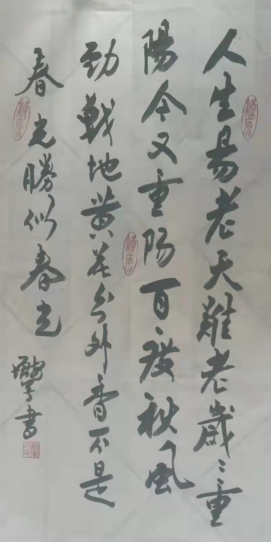 人生易老天難老歲々重
陽今又重陽度秋風
劲戰地黄花分外香不是
春光勝似春光
書